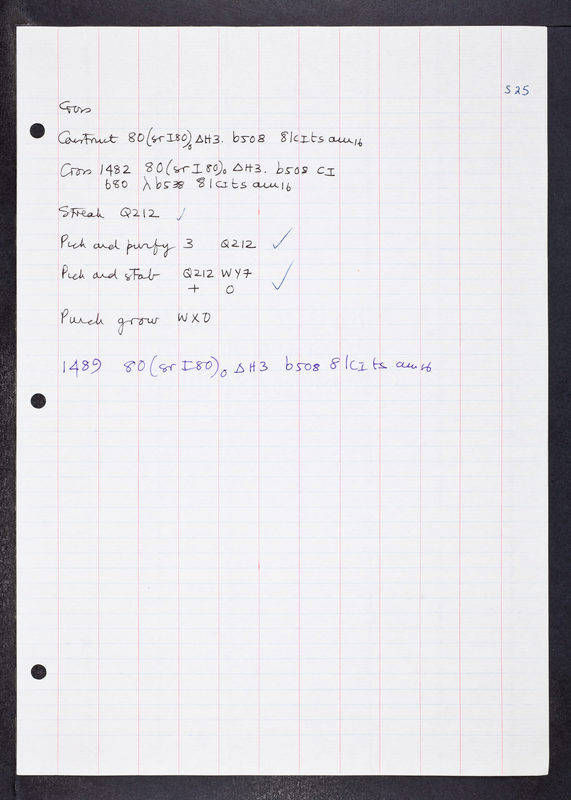 S25
Cross
Construct 80(sr I80)₀ ΔH3. b508 81cIts am16
Cross 1482 80(sr I80)₀ ΔH3. b508 CI
680 λb538 81cIts am16
Streak Q212 ✓
Pick and purify 3 Q212 ✓
Pick and stab Q212 WY7 ✓
+ 0
Punch grow WXD
1489 80(sr I80)₀ ΔH3 b508 81cI ts am16